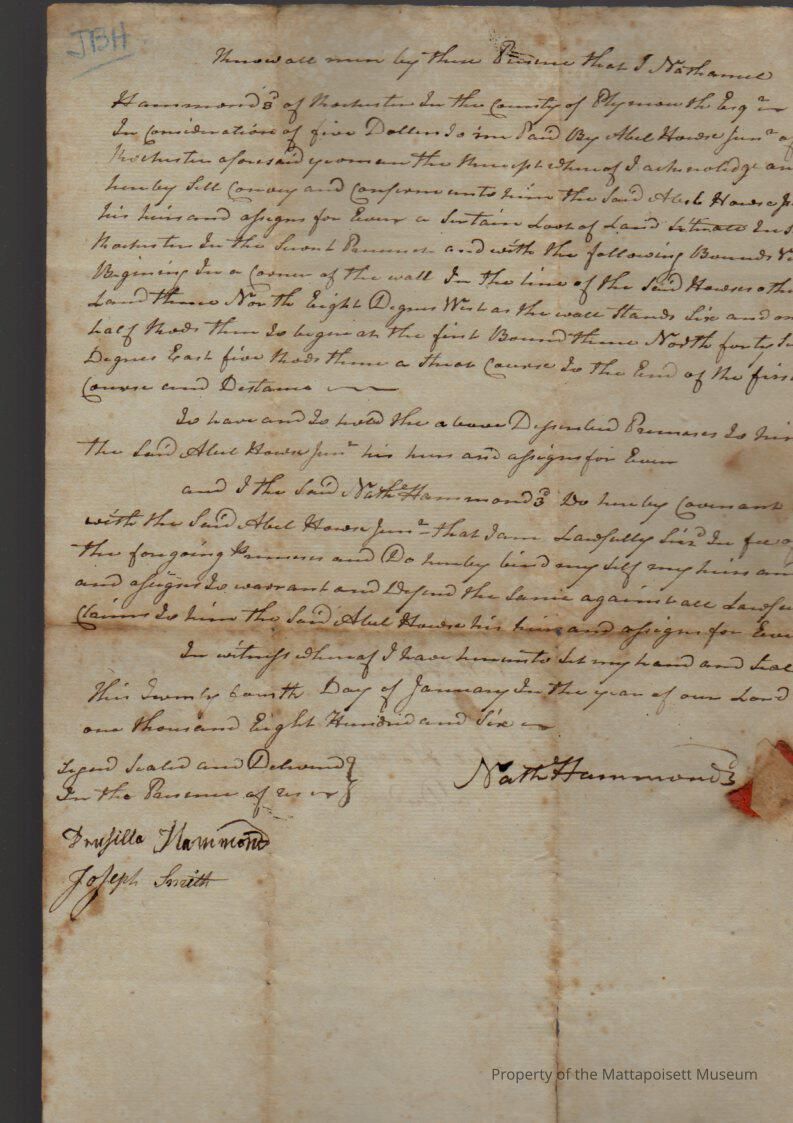 JBH
Know all men by these Presence that I Nathaniel
Hammond 3d of Rochester In the County of Plymouth Esqr
In Consideration of five Dollers to me Paid By Abel Howse Junr of
Rochester aforesaid yeoman the Receipt whereof I acknowledge an
hereby Sell Convey and Confirm unto him the Said Abel Howse J
his heirs and assigns for Ever a Sertain Loot of Land Setuate In s
Rochester In the Second Precinct and with the following Bounds V
Begining In a Corner of the wall In the line of the Said Howses othe
Land thence North Eight Degrees West as the wall Stands Six and on
half Rods then to begin at the first Bound thence North forty
Degrees East five Rods thence a Strat Course to the End of the first
Course and Distance
To have and to hold the above Described Premases to him
the Said Abel Howse Junr his heirs and assigns for Ever
and I the Said Nathl Hammond 3d Do hereby Covenant
with the Said Abel Howse Junr that I am Lawfully Siz'd In fee of
the foregoing Primeses and Do hereby bind my Self my heirs an
and assigns to warrant and Defend the Same against all Lawfu
Claims to him the Said Abel Howse his heirs and assigns for Ever
In witness whereof I have hereunto Set my hand and Seal
this Twenty fourth Day of January In the year of our Lord
one thousand Eight Hundred and Six
Signd Sealed and Deliverd
In the Presence of us
Nathl Hammond 3d
Drusilla Hammond
Joseph Smith
Property of the Mattapoisett Museum